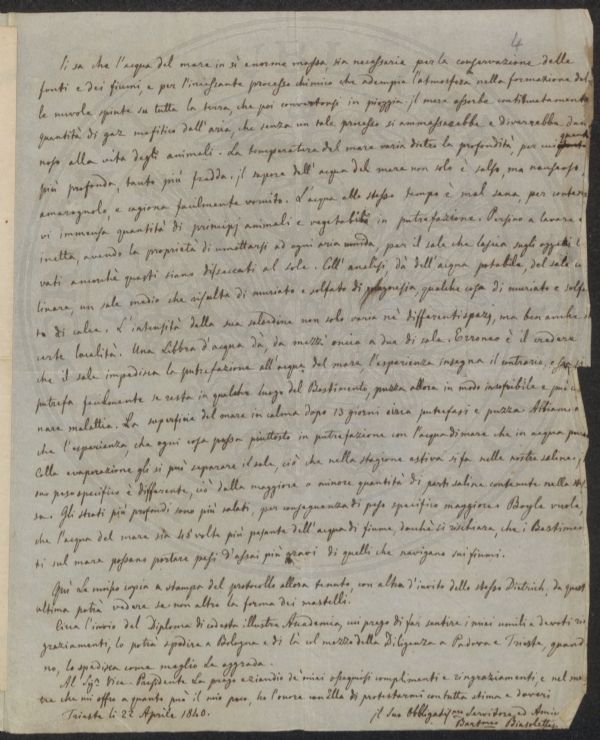 4
Si sa che l'acqua del mare in sì enorme massa, sia necessaria per la conservazione delle
fonti e dei fiumi, e per l'incessante processo chimico che adempie l'atmosfera nella formazione del
le nuvole spinte su tutta la terra, che poi convertonsi in pioggia; il mare assorbe continuatamente
quantità di gaz mefitico dall'aria, che senza un tale processo si ammasserebbe e diverrebbe dan
noso alla vita degli animali. La temperatura del mare varia dietro la profondità, per cui quanto
più profonda, tanto più fredda. il sapore dell'acqua del mare non solo è salso, ma nauseoso,
amarognolo, e cagiona facilmente vomito. L'acqua allo stesso tempo è mal sana, per contener
vi immensa quantità di principj animali e vegetabili in putrefazione. Persino a lavare è
inetta, avendo la proprietà di umettarsi ad ogni aria umida, pari il sale che lascia sugli oggetti l
vati ancorchè questi siano dissaccati al sole. Coll'analisi, dà dell'acqua potabile, del sale cu
linare, un sale medio che risulta di muriato e solfato di magnesia, qualche cosa di muriato e solfa
to di calce. L'intensità della sua salsedine non solo varia ne' differenti spazj, ma ben anche
certe località. Una Libbra d'acqua dà, da mezz'oncia a due di sale. Erroneo è il credere
che il sale impedisca la putrefazione all'acqua del mare l'esperienza insegna il contrario, e
putrefa facilmente se resta in qualche luogo del Bastimento, puzza allora in modo insofribile e può
nare malattia. La superficie del mare in calma dopo 13 giorni circa putrefasi e puzza Abbiamo a
che l'esperienza, che ogni cosa passa piuttosto in putrefazione con l'acqua di mare che in acqua pura
Colla evaporazione gli si può separare il sale, ciò che nella stagione estiva si fa nelle nostre saline; il
suo peso specifico è differente, ciò dalla maggiore o minore quantità di parti saline contenute nella
sa. Gli strati più profondi sono più salati, per conseguenza di peso specifico maggiore. Boyle vuole,
che l'acqua del mare sia 45 volte più pesante dell'acqua di fiume, donche si rischiara, che i Bastimen
ti sul mare possano portare pesi d'assai più gravi di quelli che navigano sui fiumi.
Quì Le unisco copia a stampa del protocollo allora tenuto, con altra d'invito dello stesso Dietrich, da quest
ultima potrà vedere se non altro la forma dei mastelli.
Circa l'invio del Diploma di codesta illustre Accademia, cui prego di far sentire i miei umili e devoti rin
graziamenti, lo potrà spedire a Bologna e di là col mezzo della Diligenza a Padova e Trieste, quand
no, lo spedisca come meglio Le aggrada.
Al Sigr Vice-Presidente La prego eziandio de' miei ossequiosi complimenti e ringraziamenti, e nel men
tre che mi offro a quanto può il mio poco, ho l'onore con Ella di protestarmi con tutta stima e doveri
Trieste li 22 Aprile 1840.
il Suo Obbligatissmo Servitore ed Amico
Bartmeo Biasoletto